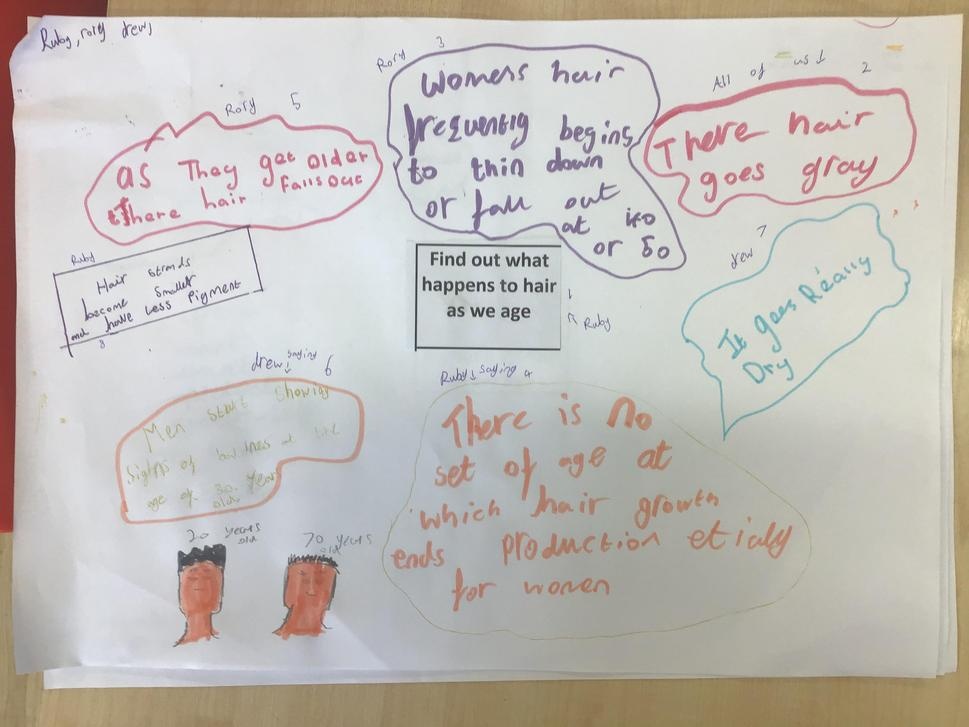 Ruby, rory drew,
Rory 5
as They get older
there hair falls out
Rory 3
Womens hair
frequently begins
to thin down
or fall out
at
or 50
All of us 2
There hair
goes gray
Ruby
Hair strands
become smaller
and have less Pigment
8
Find out what
happens to hair
as we age
1
Ruby
drew 7
It goes Really
Dry
drew saying 6
Men start showing
signs of baldness at the
age of 30 years
old
Ruby saying 4
There is no
set of age at
which hair growth
ends production
for women
20 years
old
70 years
old